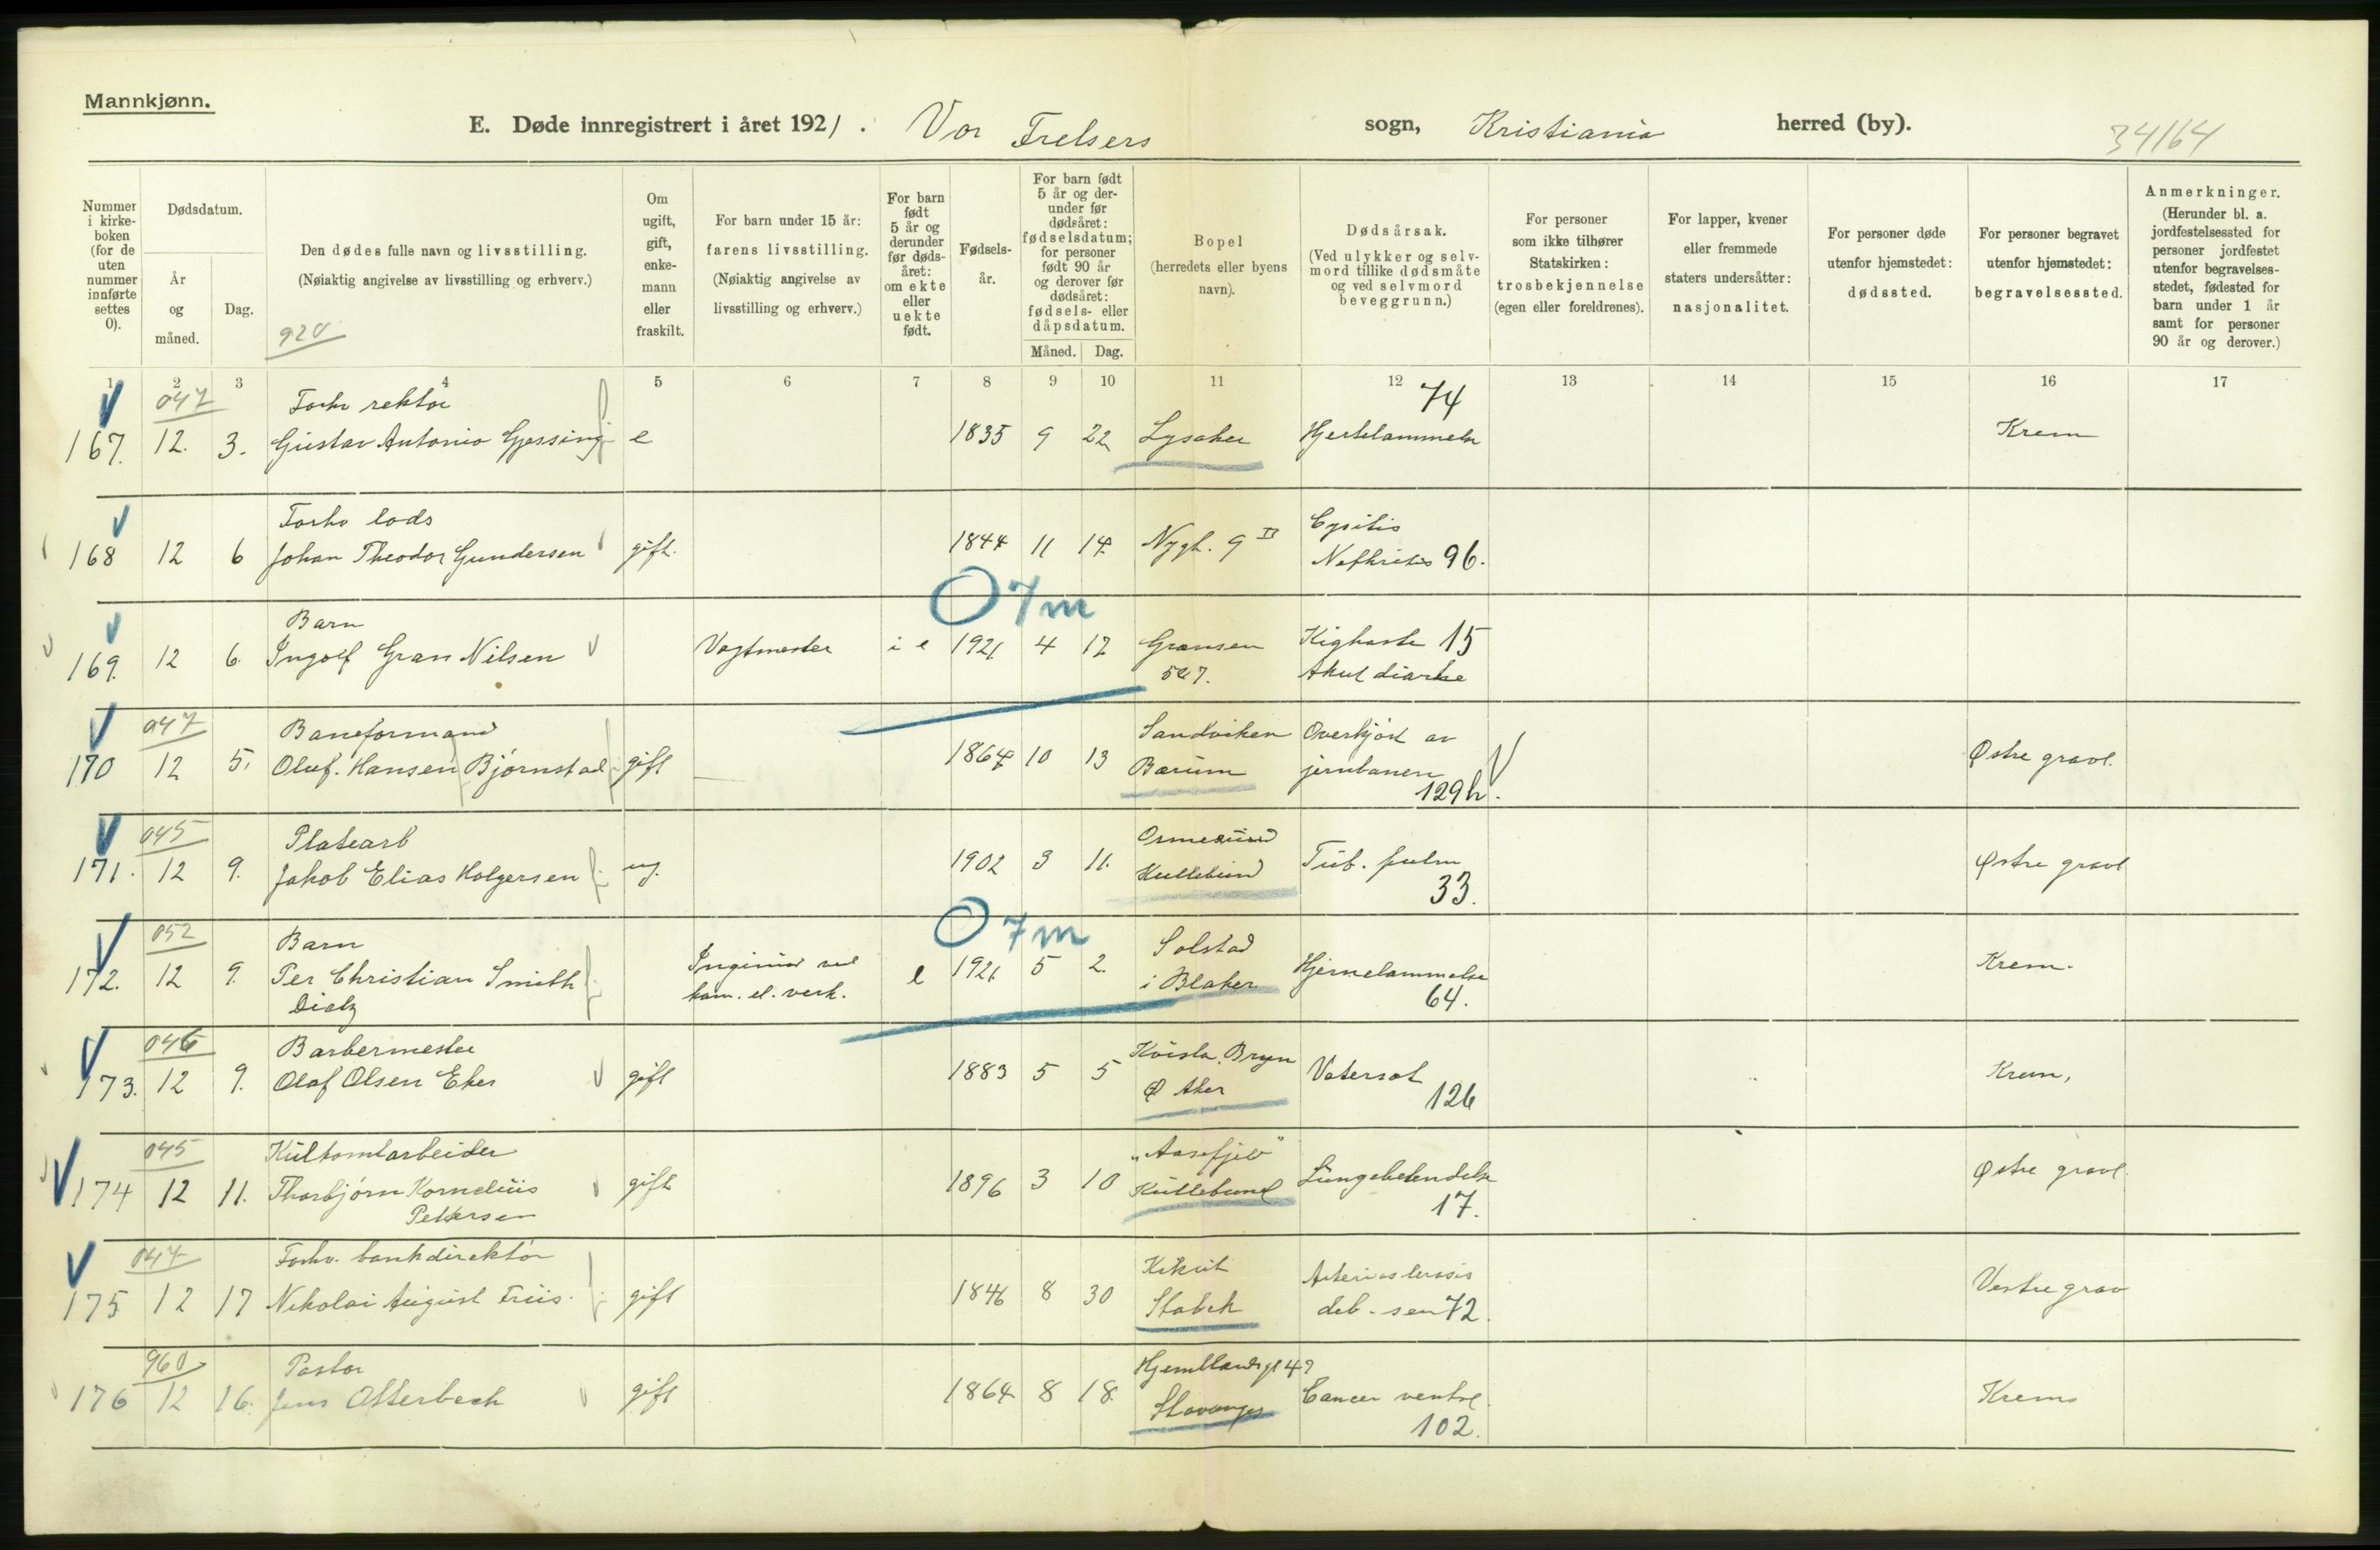 Mannkjønn.
E. Døde innregistrert i året 1921. Vor Frelsers sogn, Kristiania herred (by).
34/64
Nummer i kirkeboken (for de uten nummer innførte settes 0).
Dødsdatum.
År og måned.
Dag.
Den dødes fulle navn og livsstilling.
(Nøiaktig angivelse av livsstilling og erhverv.)
920
Om ugift, gift, enkemann eller fraskilt.
For barn under 15 år:
farens livsstilling.
(Nøiaktig angivelse av livsstilling og erhverv.)
For barn født 5 år og derunder før dødsåret: om ekte eller uekte født.
Fødselsår.
For barn født 5 år og derunder før dødsåret: fødselsdatum; for personer født 90 år og derover før dødsåret: fødsels- eller dåpsdatum.
Måned. Dag.
Bopel
(herredets eller byens navn).
Dødsårsak.
(Ved ulykker og selvmord tillike dødsmåte og ved selvmord beveggrunn.)
For personer som ikke tilhører Statskirken:
trosbekjennelse
(egen eller foreldrenes).
For lapper, kvener eller fremmede staters undersåtter:
nasjonalitet.
For personer døde utenfor hjemstedet:
dødssted.
For personer begravet utenfor hjemstedet:
begravelsessted.
Anmerkninger.
(Herunder bl. a. jordfestelsessted for personer jordfestet utenfor begravelsesstedet, fødested for barn under 1 år samt for personer 90 år og derover.)
1 2 3 4 5 6 7 8 9 10 11 12 13 14 15 16 17
047 Forhv rektor 74
167. 12. 3. Gustav Antonio Gjessing e 1835 9 22 Lysaker Hjertelammelse Krem
Forhv lods Cystitis
168 12 6 Johan Theodor Gundersen gift. 1844 11 14. Nygt. 9 II Nefritis 96.
O 7m
Barn
169. 12 6. Ingolf Gran Nilsen Vagtmester i e 1921 4 12 Grænsen Kighoste 15
5 7. Akut diarhe
047 Baneformand Sandviken Overkjørt av
170 12 5. Oluf. Hansen Bjørnstad gift 1864 10 13 Bærum jernbanen 129h. Østre gravl.
045 Platearb Ormesund
171. 12 9. Jakob Elias Holgersen ug. 1902 3 11. Kullebund Tub. pulm 33. Østre gravl
O 7m
052 Barn Solstad
172. 12 9. Per Christian Smith Ingeniør ved e 1921 5 2. i Blaker Hjernelammelse Krem.
Dietz kom. el. verk. 64.
046 Barbermester Bryn
173. 12 9. Olaf Olsen Eker gift 1883 5 5 Ø Aker Vatersot 126 Krem,
045 "Aasefjeld"
174 12 11. Thorbjørn Kornelius gift 1896 3 10 Kullebund Lungebetendelse Østre gravl.
Pettersen 17.
047 Forhv. bankdirektør
175 12 17 Nikolai August Friis. gift 1846 8 30 Stabek deb. sen 72. Vestre grav
960 Pastor
176 12 16. Jens Otterbech gift 1864 8 18. Stavanger Cancer ventrl. Krem
102.